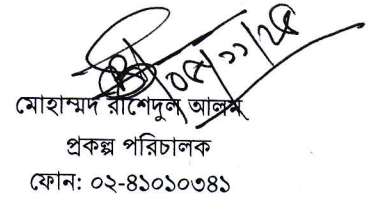 ০৫/১১/২৫
মোহাম্মদ রাশেদুল আলম
প্রকল্প পরিচালক
ফোন: ০২-৪১০১০৩৪১